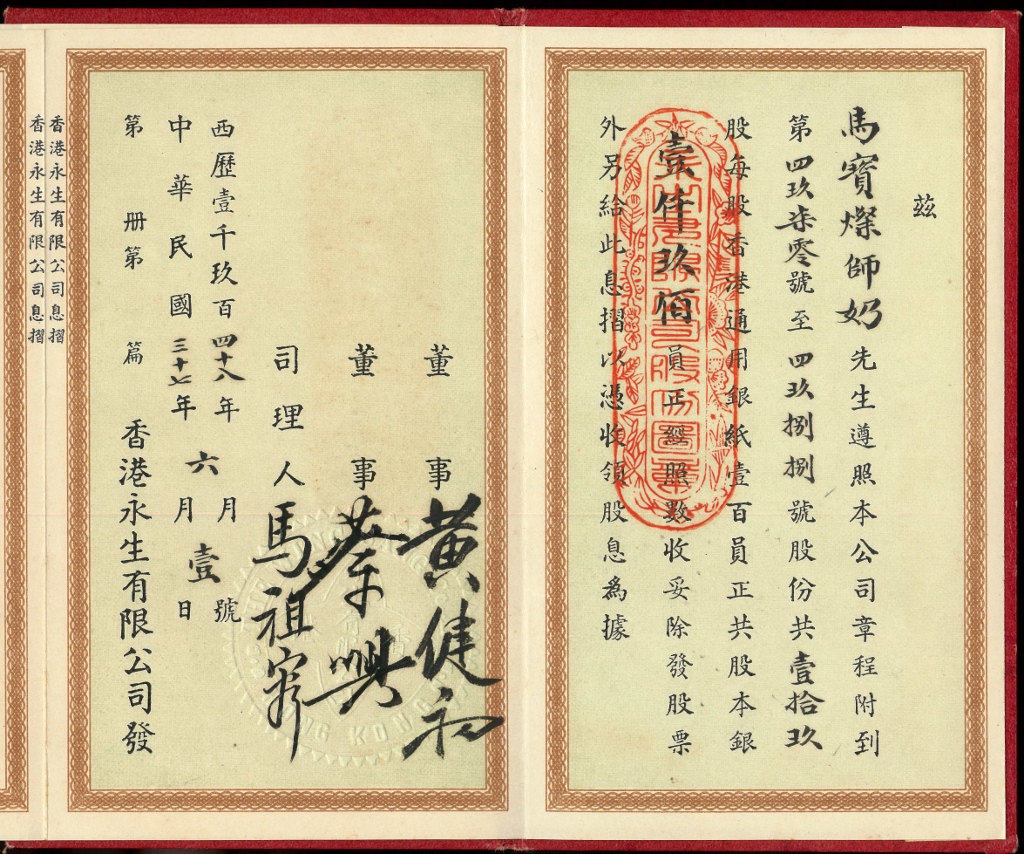 茲
馬寶燦師奶先生遵照本公司章程附到
第四玖柒零號至四玖捌捌號股份共壹拾玖
股每股香港通用銀紙壹百員正共股本銀
壹仟玖佰員正經照數收妥除發股票
外另給此息摺以憑收領股息為據
董事黃健
董事蔡興
司理人馬祖
西歷壹千玖百四十八年六月壹號
中華民國三十七年六月壹日
第 冊第 篇 香港永生有限公司發
香港永生有限公司息摺
香港永生有限公司息摺
HONG KONG